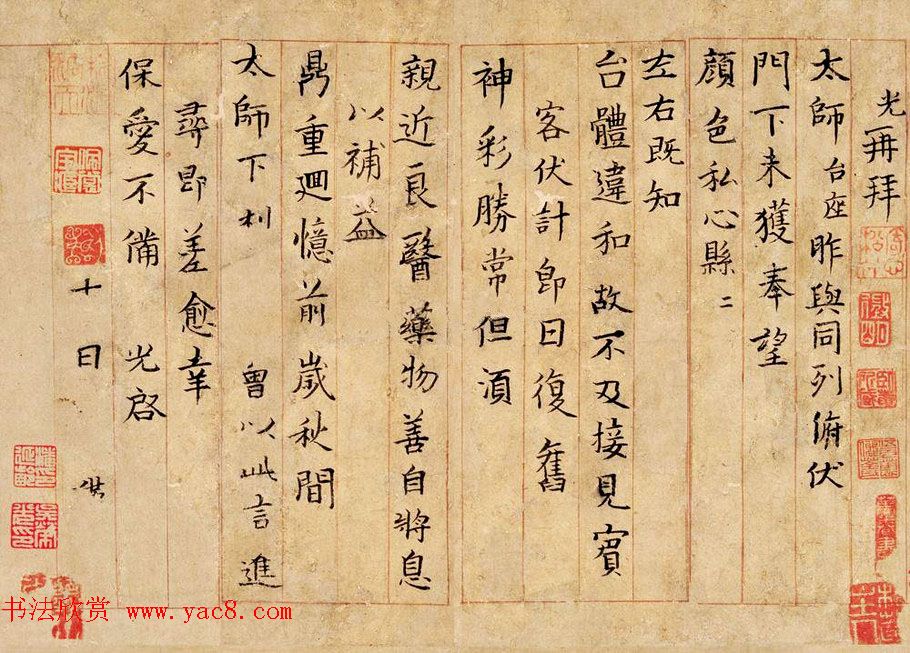 光再拜
太師台座昨與同列俯伏
門下未獲奉望
顏色私心縣〻
左右既知
台體違和故不及接見賓
客伏計即日復舊
神彩勝常但須
親近良醫藥物善自將息
以補益
鼎重迴憶前歲秋間
太師下利曾以此言進
尋即差愈幸
保愛不備光啓
十日
书法欣赏 www.yac8.com